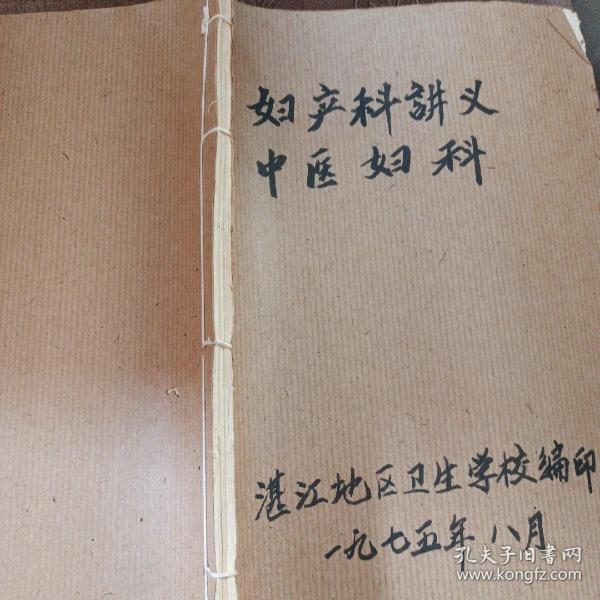 妇产科講义
中医妇科
湛江地区卫生学校编印
一九七五年八月
孔夫子旧书网
www.kongfz.com